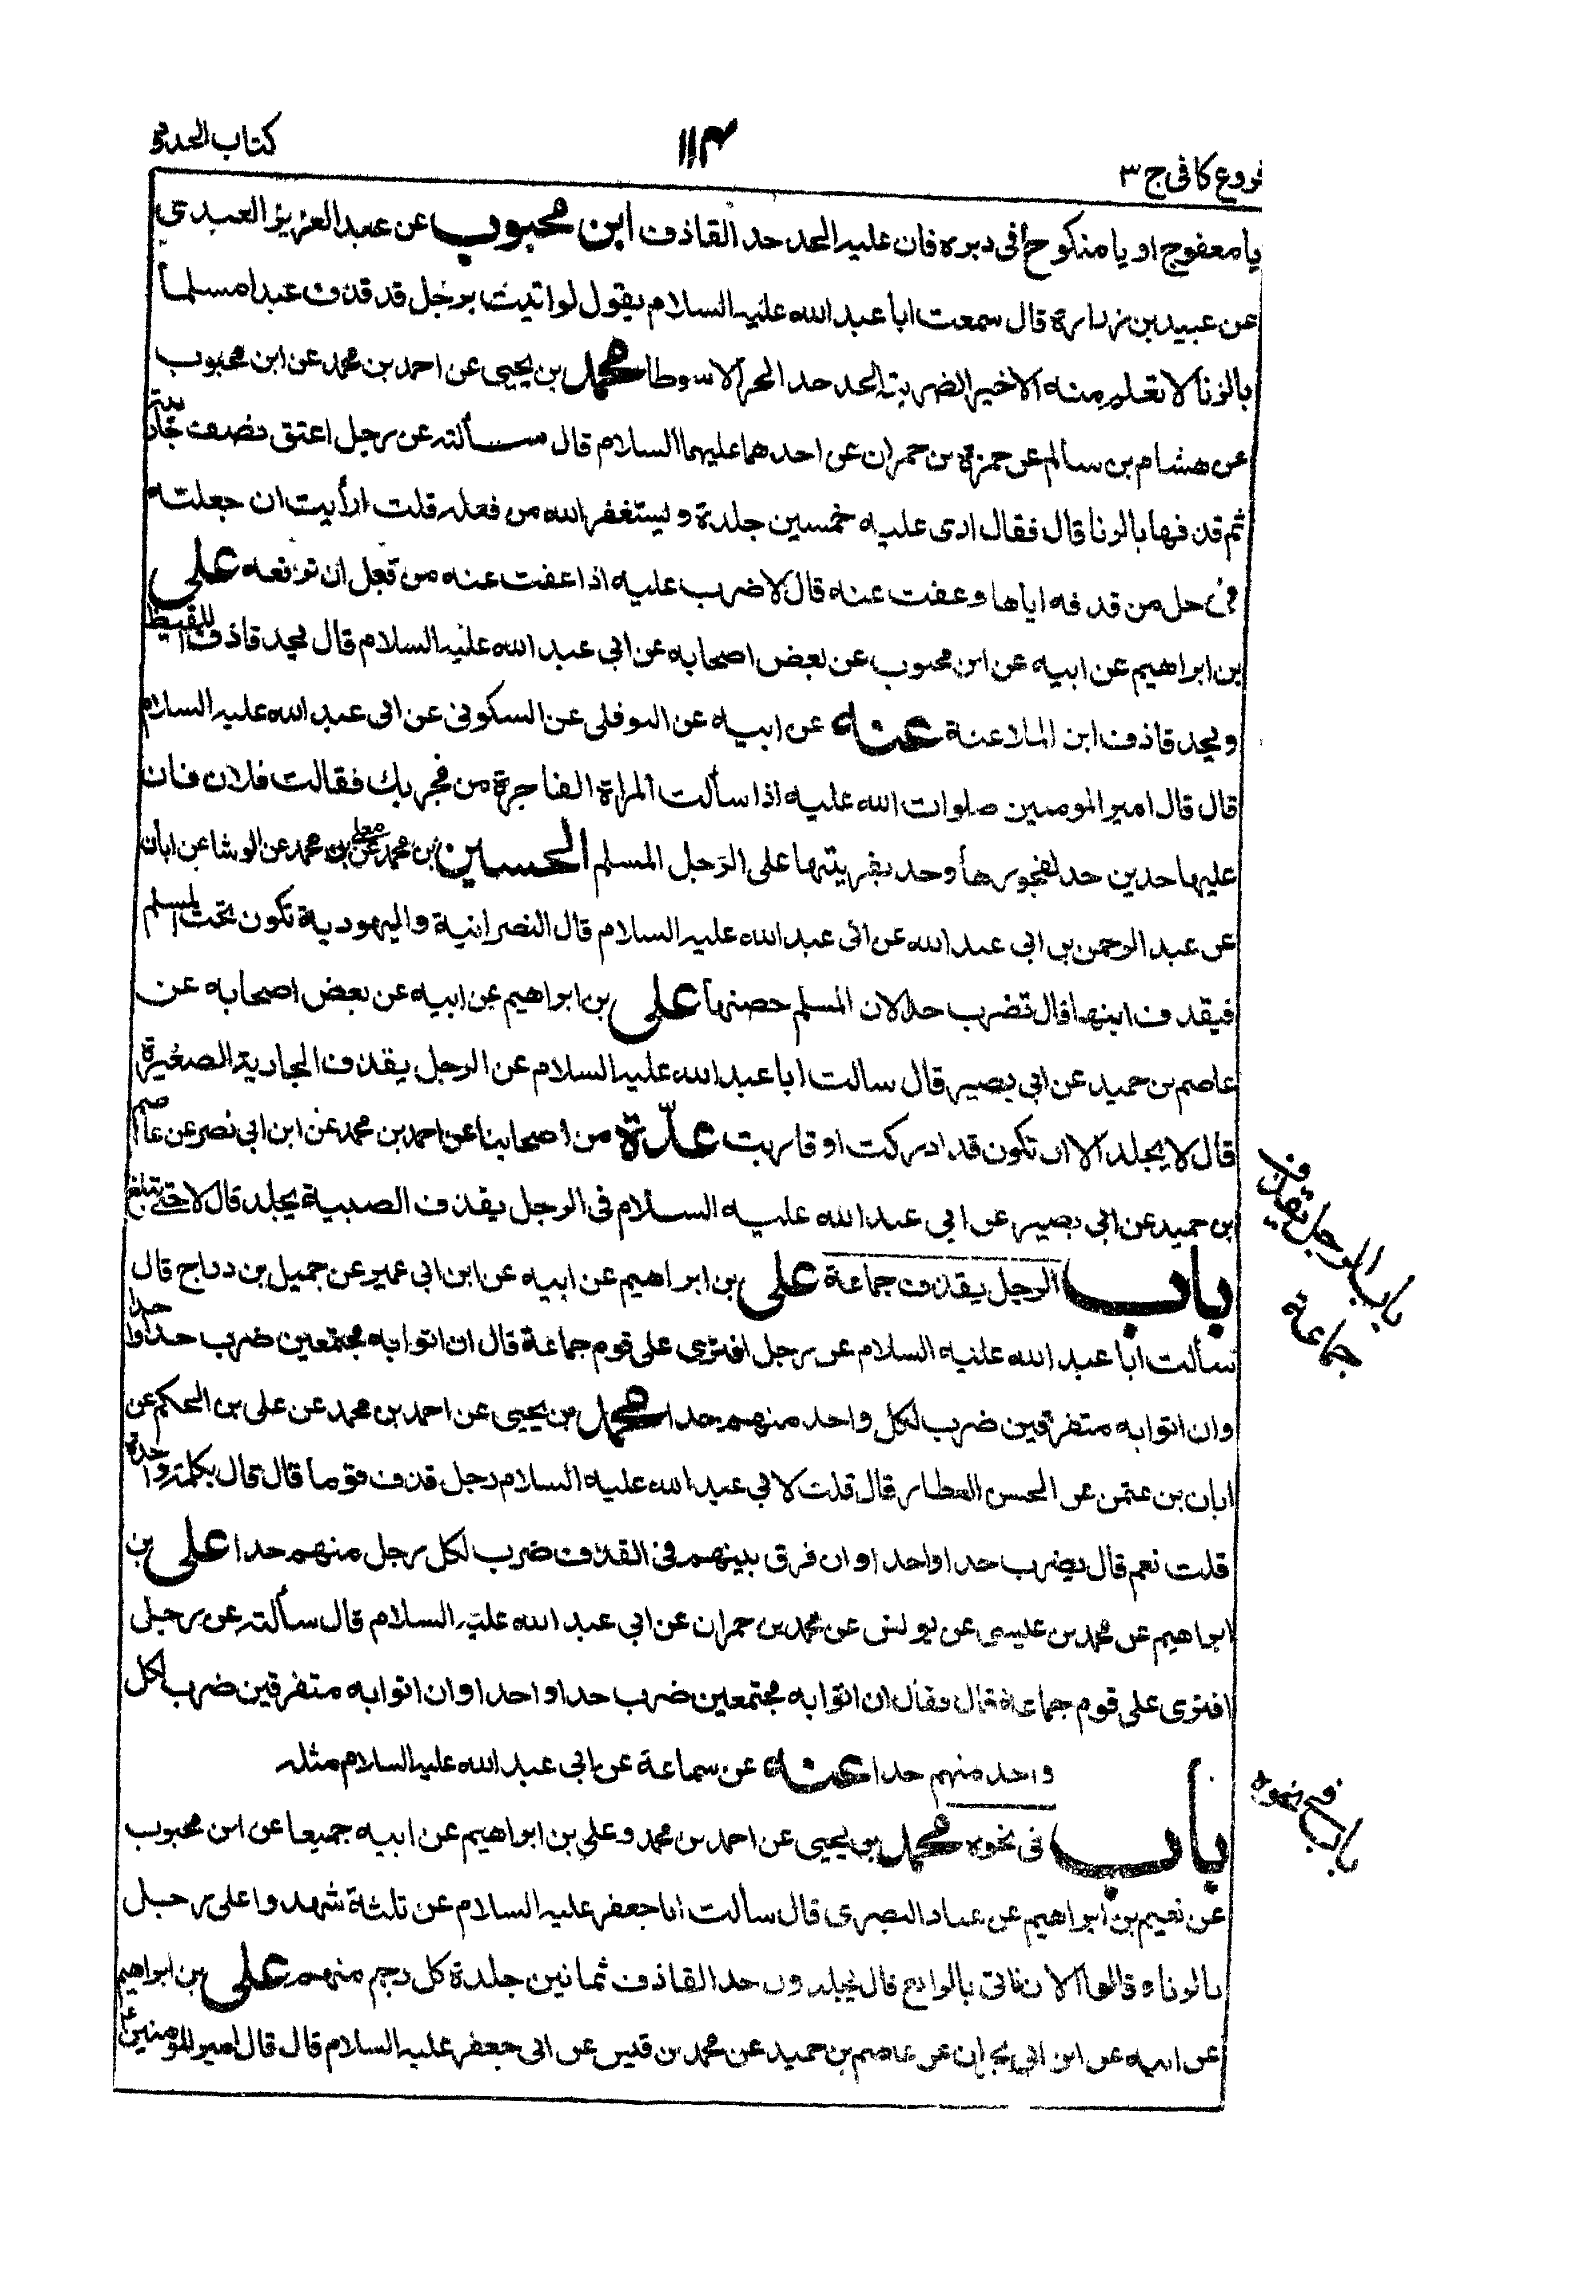 فروع کافی ج ۳
۱۱۴
کتاب الحدود
یا معفوج او یا منکوحا فی دبره فان علیه الحد حد القاذف ابن محبوب عن عبد العزیز العبدی
عن عبید بن زرارة قال سمعت ابا عبد الله علیه السلام یقول لو اتیت برجل قد قذف عبدا مسلماً
بالزنا لا تعلم منه الا خیرا لضربته الحد حد الحر الا سوطا محمد بن یحیی عن احمد بن محمد عن ابن محبوب
عن هشام بن سالم عن حمزة بن حمران عن احدهما علیهما السلام قال سألته عن رجل اعتق نصف جاریته
ثم قذفها بالزنا قال فقال اری علیه خمسین جلدة و یستغفر الله من فعله قلت ارأیت ان جعلته
فی حل من قذفه ایاها و عفت عنه قال لا ضرب علیه اذا عفت عنه من قبل ان ترفعه علی
بن ابراهیم عن ابیه عن ابن محبوب عن بعض اصحابه عن ابی عبد الله علیه السلام قال یحد قاذف اللقیط
و یحد قاذف ابن الملاعنة عنه عن ابیه عن النوفلی عن السکونی عن ابی عبد الله علیه السلام
قال قال امیر المومنین صلوات الله علیه اذا سألت المراة الفاجرة من فجر بك فقالت فلان فان
علیها حدین حد لفجورها و حد بفریتها علی الرجل المسلم الحسین بن محمد عن معلی بن محمد عن الوشا عن ابان
عن عبد الرحمن بن ابی عبد الله عن ابی عبد الله علیه السلام قال النصرانیة والیهودیة تکون تحت المسلم
فیقذف ابنها قال تضرب حدا لان المسلم حصنها علی بن ابراهیم عن ابیه عن بعض اصحابه عن
عاصم بن حمید عن ابی بصیر قال سالت ابا عبد الله علیه السلام عن الرجل یقذف الجاریة الصغیرة
قال لا یجلد الا ان تکون قد ادرکت او قاربت عدّة من اصحابنا عن احمد بن محمد عن ابن ابی نصر عن عاصم
بن حمید عن ابی بصیر عن ابی عبد الله علیه السلام فی الرجل یقذف الصبیة یجلد قال لا حتی تبلغ
باب الرجل یقذف جماعة علی بن ابراهیم عن ابیه عن ابن ابی عمیر عن جمیل بن دراج قال
سألت ابا عبد الله علیه السلام عن رجل افتری علی قوم جماعة قال ان اتوا به مجتمعین ضرب حدا واحدا
وان اتوا به متفرقین ضرب لکل واحد منهم حدا محمد بن یحیی عن احمد بن محمد عن علی بن الحکم عن
ابان بن عثمن عن الحسن العطار قال قلت لابی عبد الله علیه السلام رجل قذف قوما قال قال بکلمة واحدة
قلت نعم قال یضرب حدا واحدا وان فرق بینهم فی القذف ضرب لکل رجل منهم حدا علی بن
ابراهیم عن محمد بن عیسی عن یونس عن محمد بن حمران عن ابی عبد الله علیه السلام قال سألته عن رجل
افتری علی قوم جماعة قال فقال ان اتوا به مجتمعین ضرب حدا واحدا وان اتوا به متفرقین ضرب لکل
واحد منهم حدا عنه عن سماعة عن ابی عبد الله علیه السلام مثله
باب فی نحوه محمد بن یحیی عن احمد بن محمد و علی بن ابراهیم عن ابیه جمیعا عن ابن محبوب
عن نعیم بن ابراهیم عن عباد البصری قال سألت ابا جعفر علیه السلام عن ثلثة شهدوا علی رجل
بالزنا و قالوا الان ناتی بالرابع قال یجلدون حد القاذف ثمانین جلدة کل رجل منهم علی بن ابراهیم
عن ابیه عن ابن ابی نجران عن عاصم بن حمید عن محمد بن قیس عن ابی جعفر علیه السلام قال قال امیر المومنین ع
باب الرجل یقذف
جماعة
باب فی نحوه